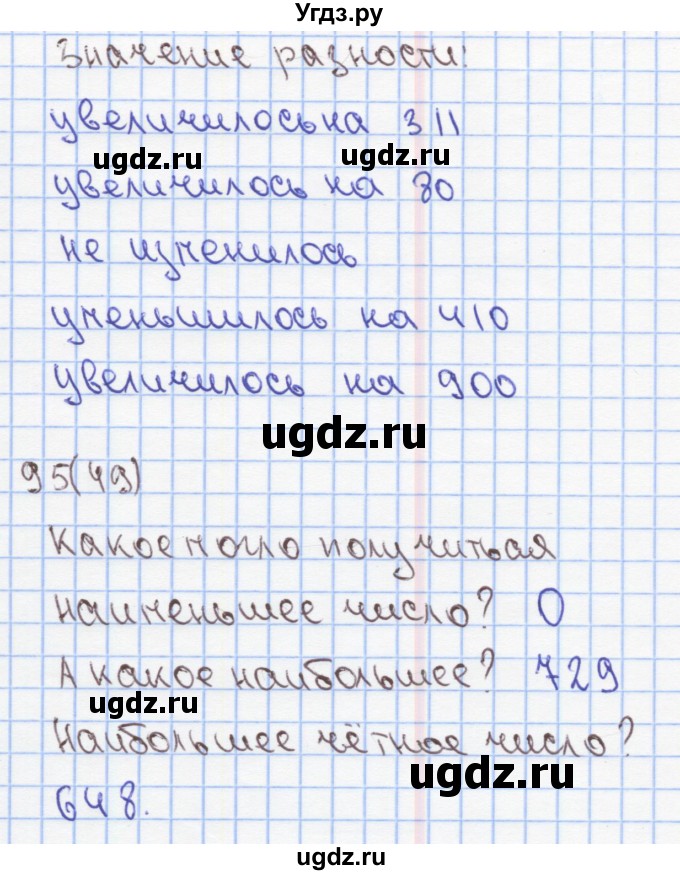 Угдз.ру
Значение разности:
увеличилось на 311
ugdz.ru ugdz.ru
увеличилось на 30
не изменилось
уменьшилось на 410
увеличилось на 900
ugdz.ru
95(49)
Какое могло получиться
наименьшее число? 0
А какое наибольшее? 729
ugdz.ru
Наибольшее чётное число?
ugdz.ru
648.
ugdz.ru